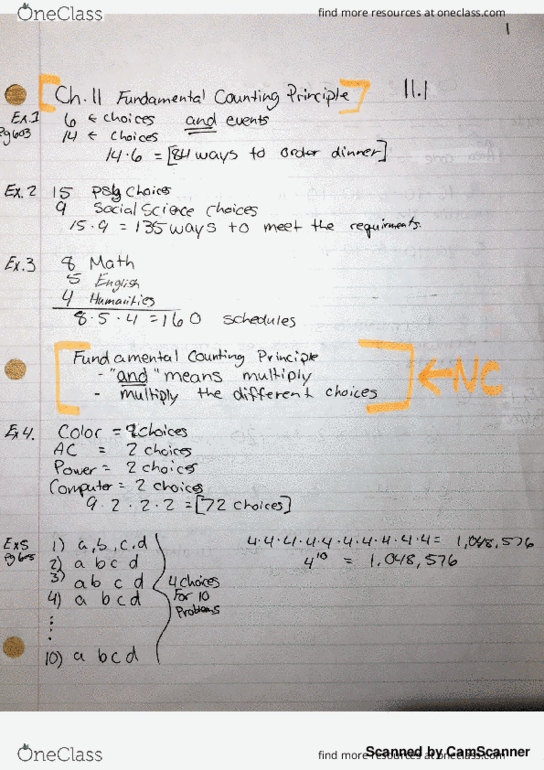 OneClass
find more resources at oneclass.com
1
Ch.11 Fundamental Counting Principle 11.1
Ex.1 6 ← choices and events
pg 603 14 ← choices
14·6 = [84 ways to order dinner]
Ex. 2 15 psy choices
9 Social Science choices
15·9 = 135 ways to meet the requirments.
Ex.3 8 Math
5 English
4 Humanities
8·5·4 = 160 schedules
Fundamental Counting Principle
- "and" means multiply
- multiply the different choices
← NC
Ex4. Color = 9 choices
AC = 2 choices
Power = 2 choices
Computer = 2 choices
9·2·2·2 = [72 choices]
Ex5 1) a, b, c, d 4·4·4·4·4·4·4·4·4·4 = 1,048,576
2) a b c d 4^10 = 1,048,576
3) a b c d
4) a b c d
4 choices
For 10
Problems
10) a b c d
OneClass
find more resources at oneclass.com
Scanned by CamScanner